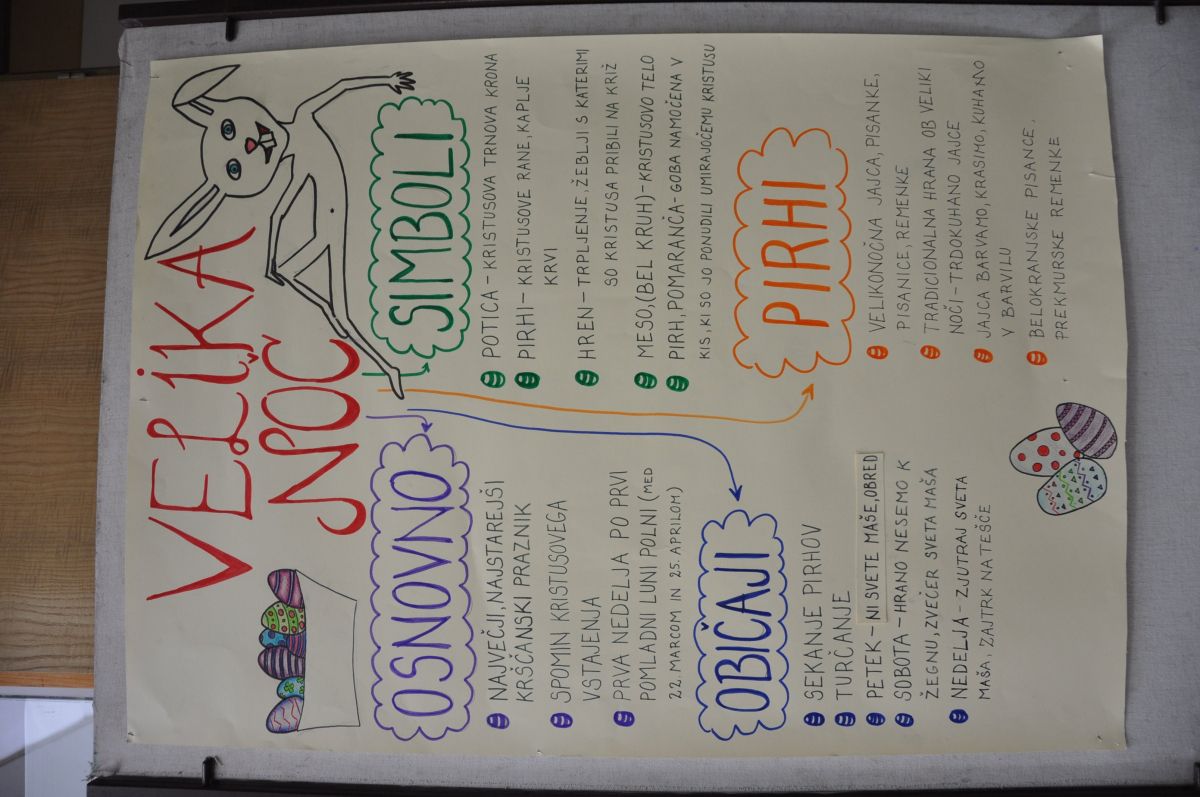 VELIKA
NOČ
OSNOVNO
NAJVEČJI, NAJSTAREJŠI
KRŠČANSKI PRAZNIK
SPOMIN KRISTUSOVEGA
VSTAJENJA
PRVA NEDELJA PO PRVI
POMLADNI LUNI POLNI (MED
22. MARCOM IN 25. APRILOM)
OBIČAJI
SEKANJE PIRHOV
TURČANJE
PETEK – NI SVETE MAŠE, OBRED
SOBOTA – HRANO NESEMO K
ŽEGNU, ZVEČER SVETA MAŠA
NEDELJA – ZJUTRAJ SVETA
MAŠA, ZAJTRK NA TEŠČE
SIMBOLI
POTICA – KRISTUSOVA TRNOVA KRONA
PIRHI – KRISTUSOVE RANE, KAPLJE
KRVI
HREN – TRPLJENJE, ŽEBLJI S KATERIMI
SO KRISTUSA PRIBILI NA KRIŽ
MESO, (BEL KRUH) – KRISTUSOVO TELO
PIRH, POMARANČA – GOBA NAMOČENA V
KIS, KI SO JO PONUDILI UMIRAJOČEMU KRISTUSU
PIRHI
VELIKONOČNA JAJCA, PISANKE,
PISANICE, REMENKE
TRADICIONALNA HRANA OB VELIKI
NOČI – TRDOKUHANO JAJCE
JAJCA BARVAMO, KRASIMO, KUHAMO
V BARVILU
BELOKRANJSKE PISANCE,
PREKMURSKE REMENKE